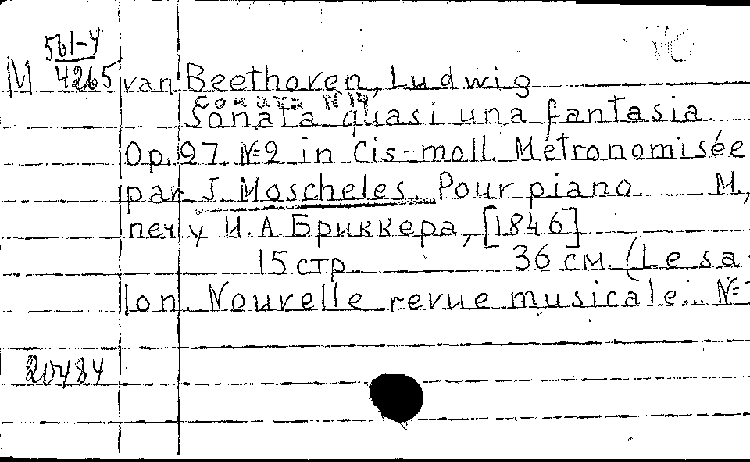 М 561-4
4265
van Beethoven, Ludwig
Соната №14
Sonata quasi una fantasia
Op. 27 №2 in Cis-moll. Métronomisée
par J. Moscheles. Pour piano М.,
печ у И.А. Бриккера, [1846]
15 стр. 36 см. (Le sa-
lon. Nouvelle revue musicale. №
20484